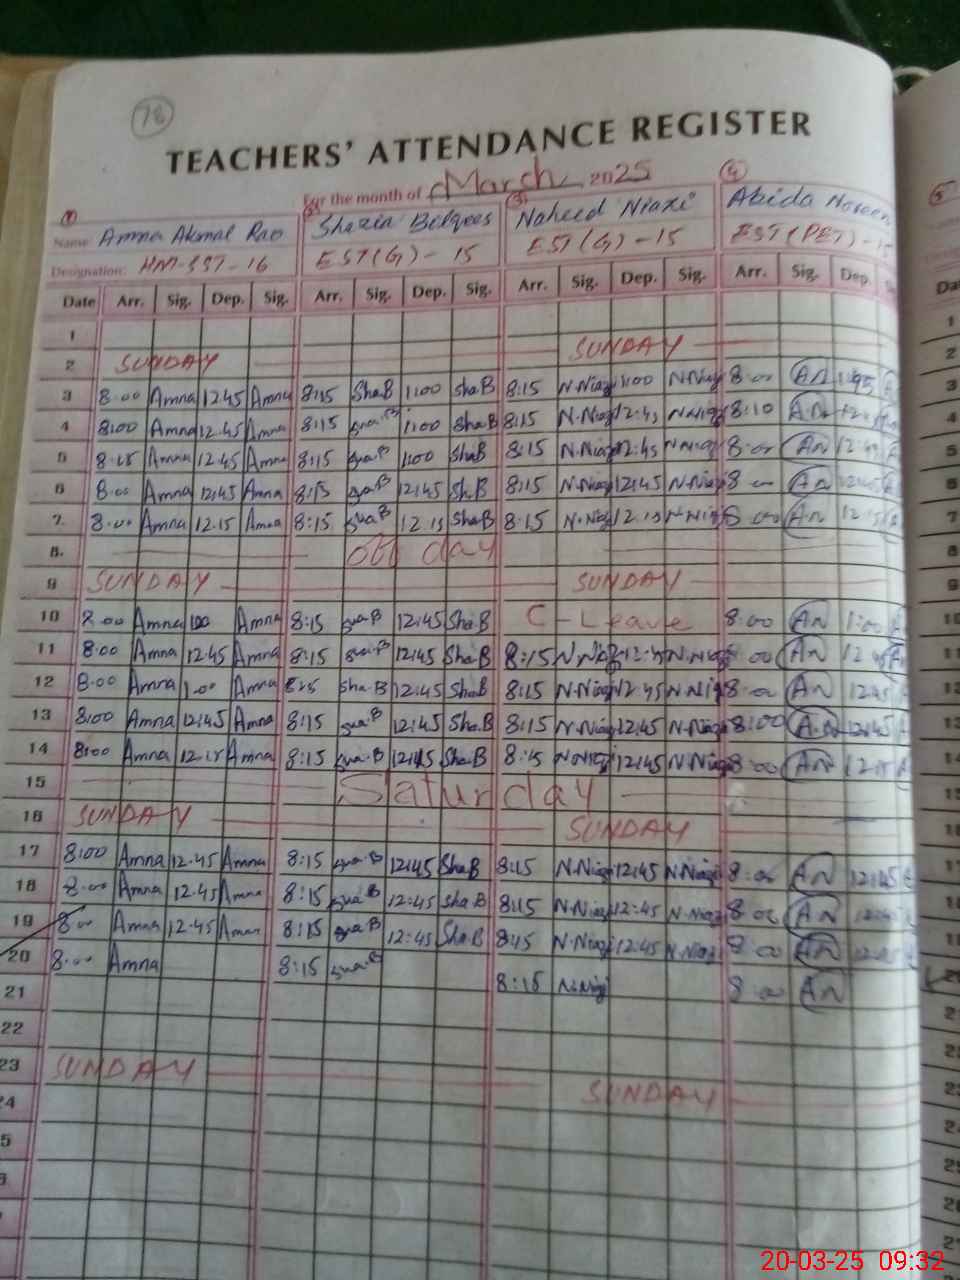 78
TEACHERS' ATTENDANCE REGISTER
For the month of March 2025
1 3 4 5
Name: Amna Akmal Rao Shazia Belqees Naheed Niazi Abida Noreen
Designation: HM-SST-16 EST(G)-15 EST(G)-15 EST(PET)-15
Date Arr. Sig. Dep. Sig. Arr. Sig. Dep. Sig. Arr. Sig. Dep. Sig. Arr. Sig. Dep.
1
2 SUNDAY SUNDAY
3 8:00 Amna 12.45 Amna 8:15 ShaB 1:00 ShaB 8:15 N.Niazi 1:00 N.Niazi 8:00 AN
4 8:00 Amna 12.45 Amna 8:15 1:00 ShaB 8:15 N.Niazi 12:45 N.Niazi 8:10 AN
5 8:15 Amna 12.45 Amna 8:15 1:00 ShaB 8:15 N.Niazi 12:45 N.Niazi 8:00 AN 12:45
6 8:00 Amna 12:45 Amna 8:15 12:45 ShaB 8:15 N.Niazi 12:45 N.Niazi 8:00 AN 12:45
7. 8:00 Amna 12.15 Amna 8:15 12:15 ShaB 8:15 N.Niazi 12:15 N.Niazi 8:00 AN 12:15
8. off day
9 SUNDAY SUNDAY
10 8:00 Amna 1:00 Amna 8:15 12:45 ShaB C-Leave 8:00 AN 1:00
11 8:00 Amna 12.45 Amna 8:15 12:45 ShaB 8:15 N.Niazi 12:45 N.Niazi 8:00 AN 12:45
12 8:00 Amna 1:00 Amna 8:15 Sha.B 12:45 ShaB 8:15 N.Niazi 12:45 N.Niazi 8:00 AN 12:45
13 8:00 Amna 12:45 Amna 8:15 12:45 ShaB 8:15 N.Niazi 12:45 N.Niazi 8:00 A.N 12:45
14 8:00 Amna 12.15 Amna 8:15 ShaB 8:15 N.Niazi 12:45 N.Niazi 8:00 AN 12:15
15 Saturday
16 SUNDAY SUNDAY
17 8:00 Amna 12.45 Amna 8:15 12:45 ShaB 8:15 N.Niazi 12:45 N.Niazi 8:00 AN 12:45
18 8:00 Amna 12.45 Amna 8:15 12:45 ShaB 8:15 N.Niazi 12:45 N.Niazi 8:00 AN 12:45
19 8:00 Amna 12.45 Amna 8:15 12:45 ShaB 8:15 N.Niazi 12:45 N.Niazi 8:00 AN 12:45
20 8:00 Amna 8:15 8:15 N.Niazi 8:00 AN
21
22
23 SUNDAY SUNDAY
20-03-25 09:32